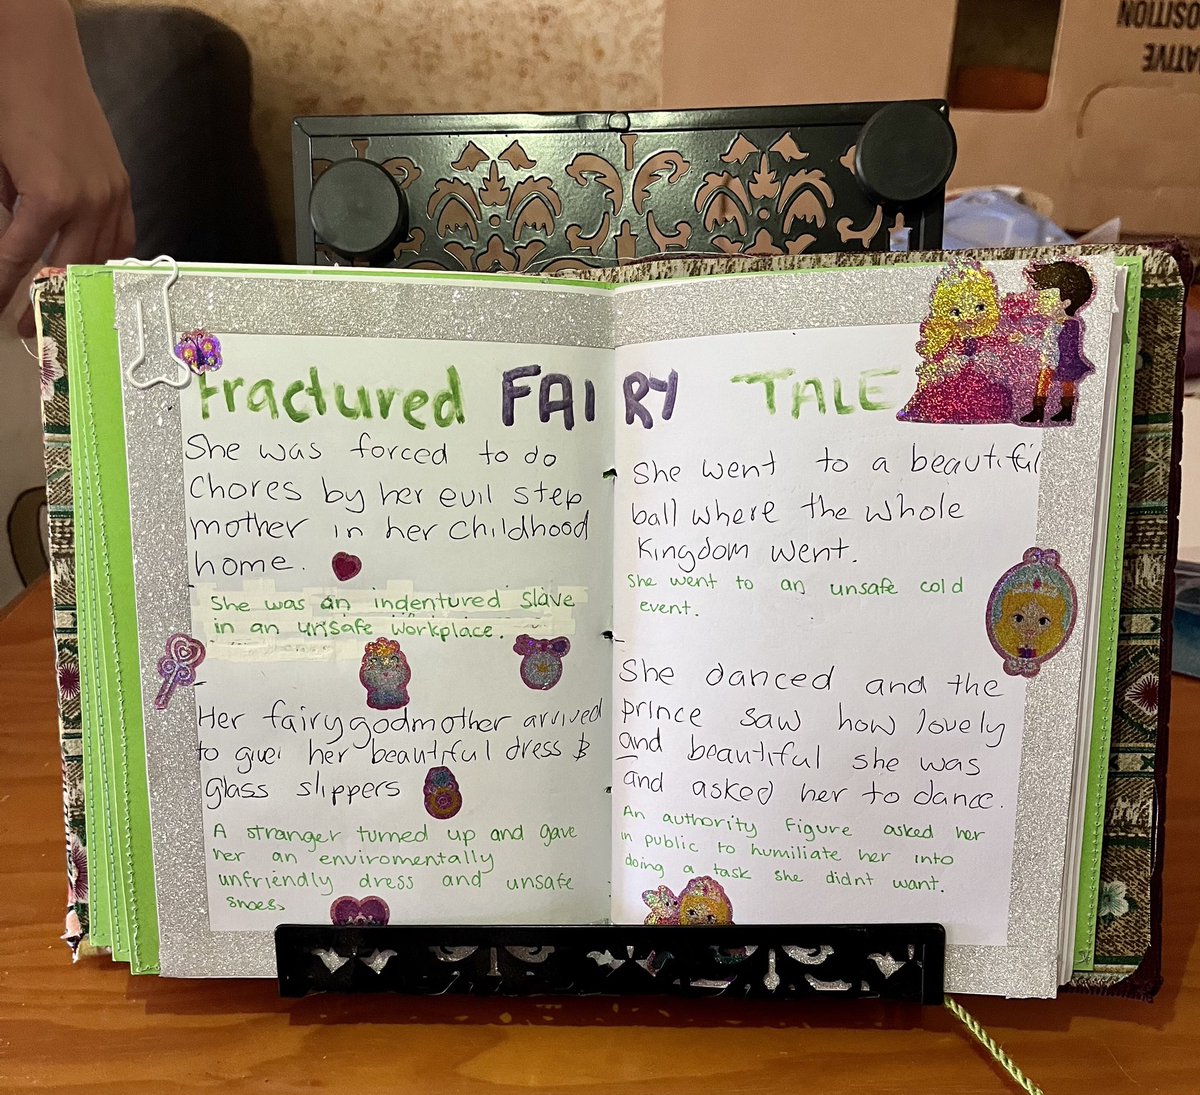 NOITISO
ATIVE
POSITION
Fractured FAIRY TALE
She was forced to do
chores by her evil step
mother in her childhood
home.
She was an indentured slave
in an unsafe workplace.
Her fairygodmother arrived
to give her beautiful dress &
glass slippers
A stranger turned up and gave
her an enviromentally
unfriendly dress and unsafe
shoes
She went to a beautiful
ball where the whole
Kingdom went.
She went to an unsafe cold
event.
She danced and the
prince saw how lovely
and beautiful she was
and asked her to dance.
An authority figure asked her
in public to humiliate her into
doing a task she didnt want.